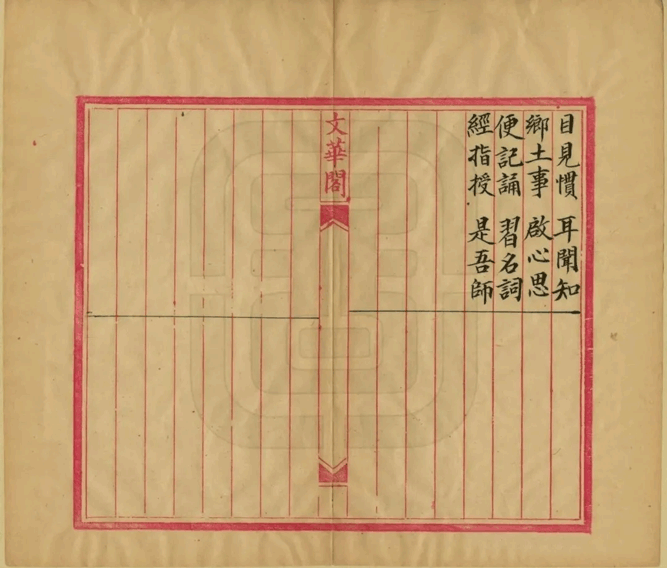 目見慣　耳聞知
鄉土事　啟心思
便記誦　習名詞
經指授　是吾師
文華閣